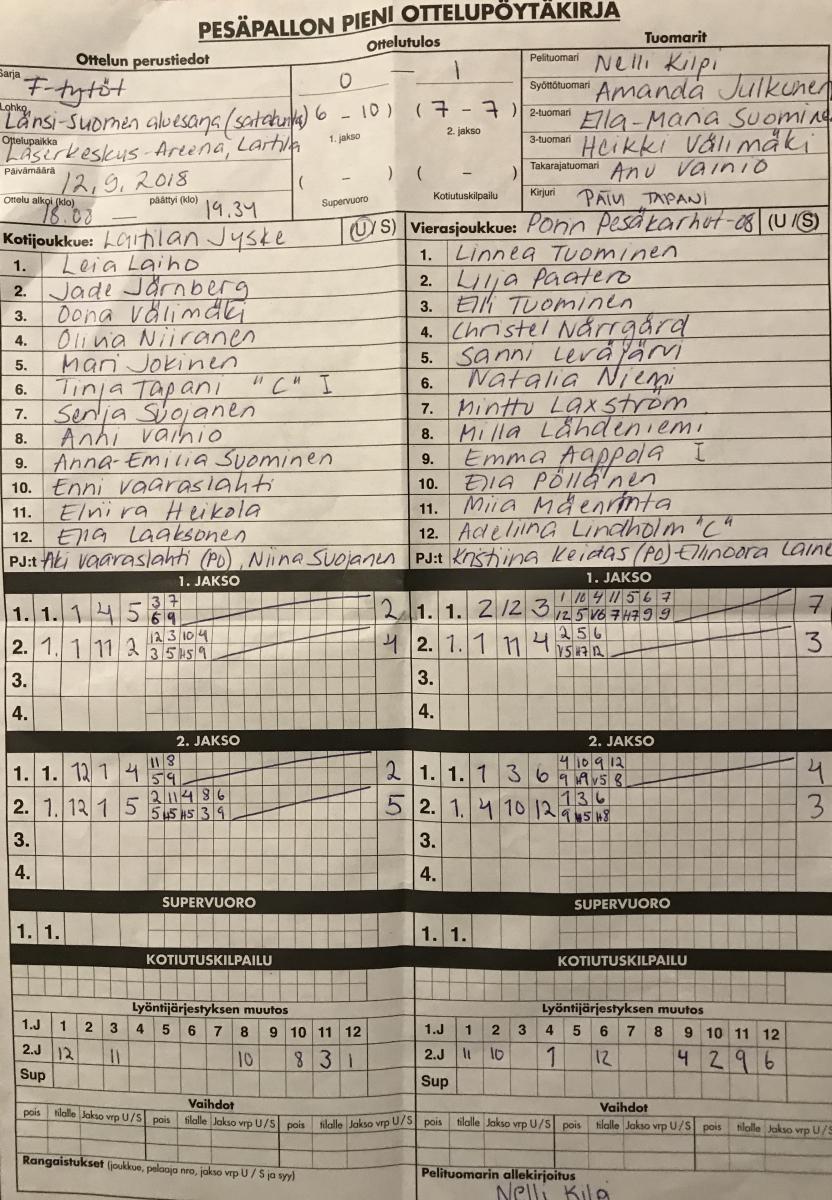 PESÄPALLON PIENI OTTELUPÖYTÄKIRJA
Ottelun perustiedot
Ottelutulos
Tuomarit
Sarja F-tytöt
Lohko Länsi-Suomen aluesarja (satakunta)
Ottelupaikka Laserkeskus-Areena, Laitila
Päivämäärä 12.9.2018
Ottelu alkoi (klo) 18.08 — päättyi (klo) 19.34
0 — 1
( 6 - 10 ) ( 7 - 7 )
1. jakso 2. jakso
( - ) ( - )
Supervuoro Kotiutuskilpailu
Pelituomari Nelli Kilpi
Syöttötuomari Amanda Julkunen
2-tuomari Ella-Maria Suomine
3-tuomari Heikki Välimäki
Takarajatuomari Anu Vainio
Kirjuri PÄIVI TAPANI
Kotijoukkue: Laitilan Jyske (U/S)
1. Leia Laiho
2. Jade Järnberg
3. Oona Välimäki
4. Olivia Niiranen
5. Mari Jokinen
6. Tinja Tapani "C" I
7. Senja Suojanen
8. Anni Vainio
9. Anna-Emilia Suominen
10. Enni Vaaraslahti
11. Elviira Heikola
12. Ella Laaksonen
PJ:t Aki Vaaraslahti (PO), Niina Suojanen
Vierasjoukkue: Porin Pesäkarhut-08 (U/S)
1. Linnea Tuominen
2. Lilja Paatero
3. Elli Tuominen
4. Christel Närrgård
5. Sanni Leväjärvi
6. Natalia Niemi
7. Minttu Laxström
8. Milla Lähdeniemi
9. Emma Aappola I
10. Ella Pöllänen
11. Miia Mäenrinta
12. Adeliina Lindholm "C"
PJ:t Kristiina Keidas (PO) Ellinoora Laine
1. JAKSO
1. 1. 1 4 5 3 7 2
6 9
2. 1. 1 11 2 12 3 10 4 4
3 5 H5 9
3.
4.
1. JAKSO
1. 1. 2 12 3 1 10 4 11 5 6 7 7
12 5 V6 7 H7 9 9
2. 1. 1 11 4 2 5 6 3
V5 H7 12
3.
4.
2. JAKSO
1. 1. 12 1 4 11 8 2
5 9
2. 1. 12 1 5 2 11 4 8 6 5
5 H5 H5 3 9
3.
4.
2. JAKSO
1. 1. 1 3 6 4 10 9 12 4
9 H9 V5 8
2. 1. 4 10 12 1 3 6 3
9 H5 H8
3.
4.
SUPERVUORO
1. 1.
SUPERVUORO
1. 1.
KOTIUTUSKILPAILU
KOTIUTUSKILPAILU
Lyöntijärjestyksen muutos
1.J 1 2 3 4 5 6 7 8 9 10 11 12
2.J 12 11 10 8 3 1
Sup
Lyöntijärjestyksen muutos
1.J 1 2 3 4 5 6 7 8 9 10 11 12
2.J 11 10 1 12 4 2 9 6
Sup
Vaihdot
pois tilalle Jakso vrp U/S pois tilalle Jakso vrp U/S pois tilalle Jakso vrp U/S
Vaihdot
pois tilalle Jakso vrp U/S pois tilalle Jakso vrp U/S pois tilalle Jakso vrp U/S
Rangaistukset (joukkue, pelaaja nro, jakso vrp U / S ja syy)
Pelituomarin allekirjoitus
Nelli Kilp